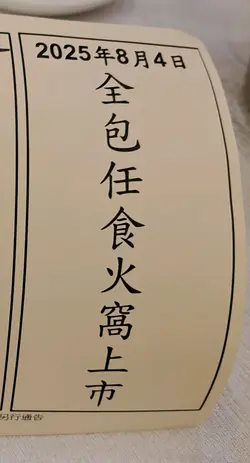 2025年8月4日
全包任食火窩上市
另行通告